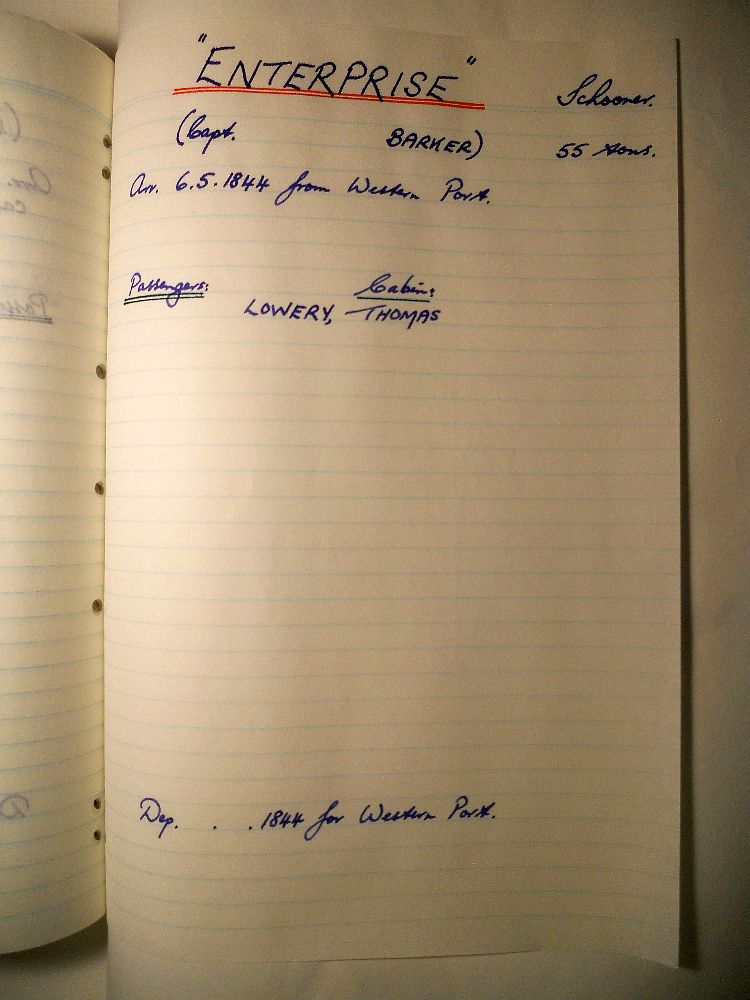 "ENTERPRISE"
Schooner.
(Capt. BARKER)
55 tons.
Arr. 6.5.1844 from Western Port.
Passengers:
Cabin:
LOWERY, THOMAS
Dep. . . 1844 for Western Port.